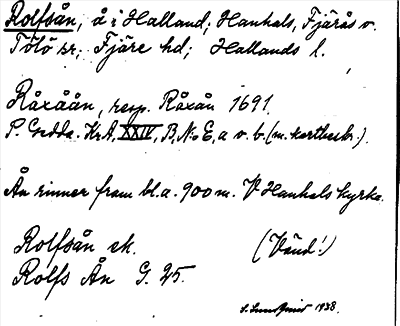 Rolfsån, å i Halland; Hanhals, Fjärås o.
Tölö sr; Fjäre hd; Hallands l.
Råxåån, resp. Råxån 1691.
P. Gedda. KrA, XXIV, B, No E, a o. b. (m. kartbeskr.).
Ån rinner fram bl.a. 900 m. V Hanhals kyrka.
Rolfsån ek. (Vänd!)
Rolfs Ån G. 25.
1938.